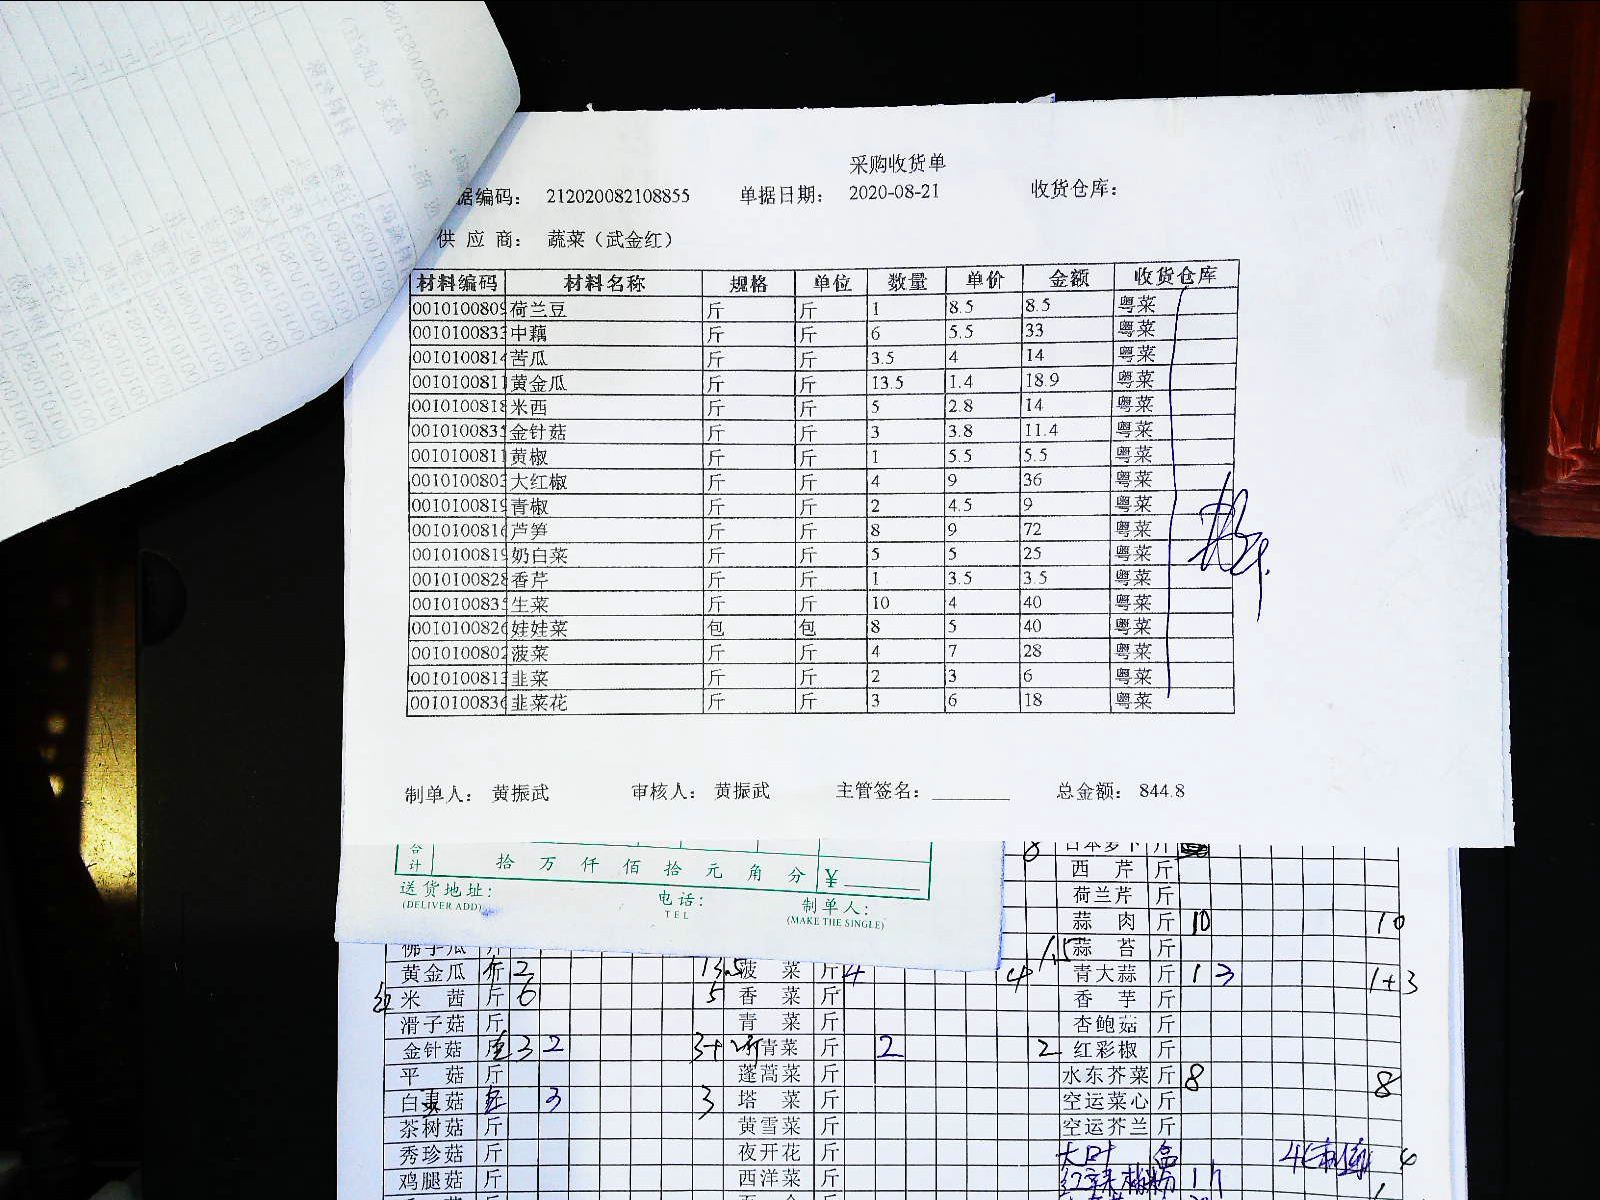 采购收货单
据编码： 212020082108855 单据日期： 2020-08-21 收货仓库：
供 应 商： 蔬菜（武金红）
材料编码 材料名称 规格 单位 数量 单价 金额 收货仓库
0010100809 荷兰豆 斤 斤 1 8.5 8.5 粤菜
001010083 中藕 斤 斤 6 5.5 33 粤菜
0010100814 苦瓜 斤 斤 3.5 4 14 粤菜
001010081 黄金瓜 斤 斤 13.5 1.4 18.9 粤菜
0010100818 米西 斤 斤 5 2.8 14 粤菜
001010083 金针菇 斤 斤 3 3.8 11.4 粤菜
001010081 黄椒 斤 斤 1 5.5 5.5 粤菜
001010080 大红椒 斤 斤 4 9 36 粤菜
0010100819 青椒 斤 斤 2 4.5 9 粤菜
0010100816 芦笋 斤 斤 8 9 72 粤菜
0010100819 奶白菜 斤 斤 5 5 25 粤菜
0010100828 香芹 斤 斤 1 3.5 3.5 粤菜
001010083 生菜 斤 斤 10 4 40 粤菜
0010100826 娃娃菜 包 包 8 5 40 粤菜
0010100802 菠菜 斤 斤 4 7 28 粤菜
001010081 韭菜 斤 斤 2 3 6 粤菜
0010100836 韭菜花 斤 斤 3 6 18 粤菜
制单人： 黄振武 审核人： 黄振武 主管签名：________ 总金额： 844.8
合计 拾 万 仟 佰 拾 元 角 分 ¥
送货地址： 电话： 制单人：
(DELIVER ADD) TEL (MAKE THE SINGLE)
8 日本萝卜 斤
西 芹 斤
荷兰芹 斤
蒜 肉 斤 10 10
佛手瓜 斤 蒜 苔 斤
黄金瓜 斤 2 13.5 菠 菜 斤 4 4 青大蒜 斤 1 3 1+3
红 米 茜 斤 6 5 香 菜 斤 香 芋 斤
滑子菇 斤 青 菜 斤 杏鲍菇 斤
金针菇 3 2 青菜 斤 2 2 红彩椒 斤
平 菇 斤 蓬蒿菜 斤 水东芥菜 斤 8 8
白 菇 3 3 塔 菜 斤 空运菜心 斤
茶树菇 斤 黄雪菜 斤 空运芥兰 斤
秀珍菇 斤 夜开花 斤 大叶 盒 4
鸡腿菇 斤 西洋菜 斤